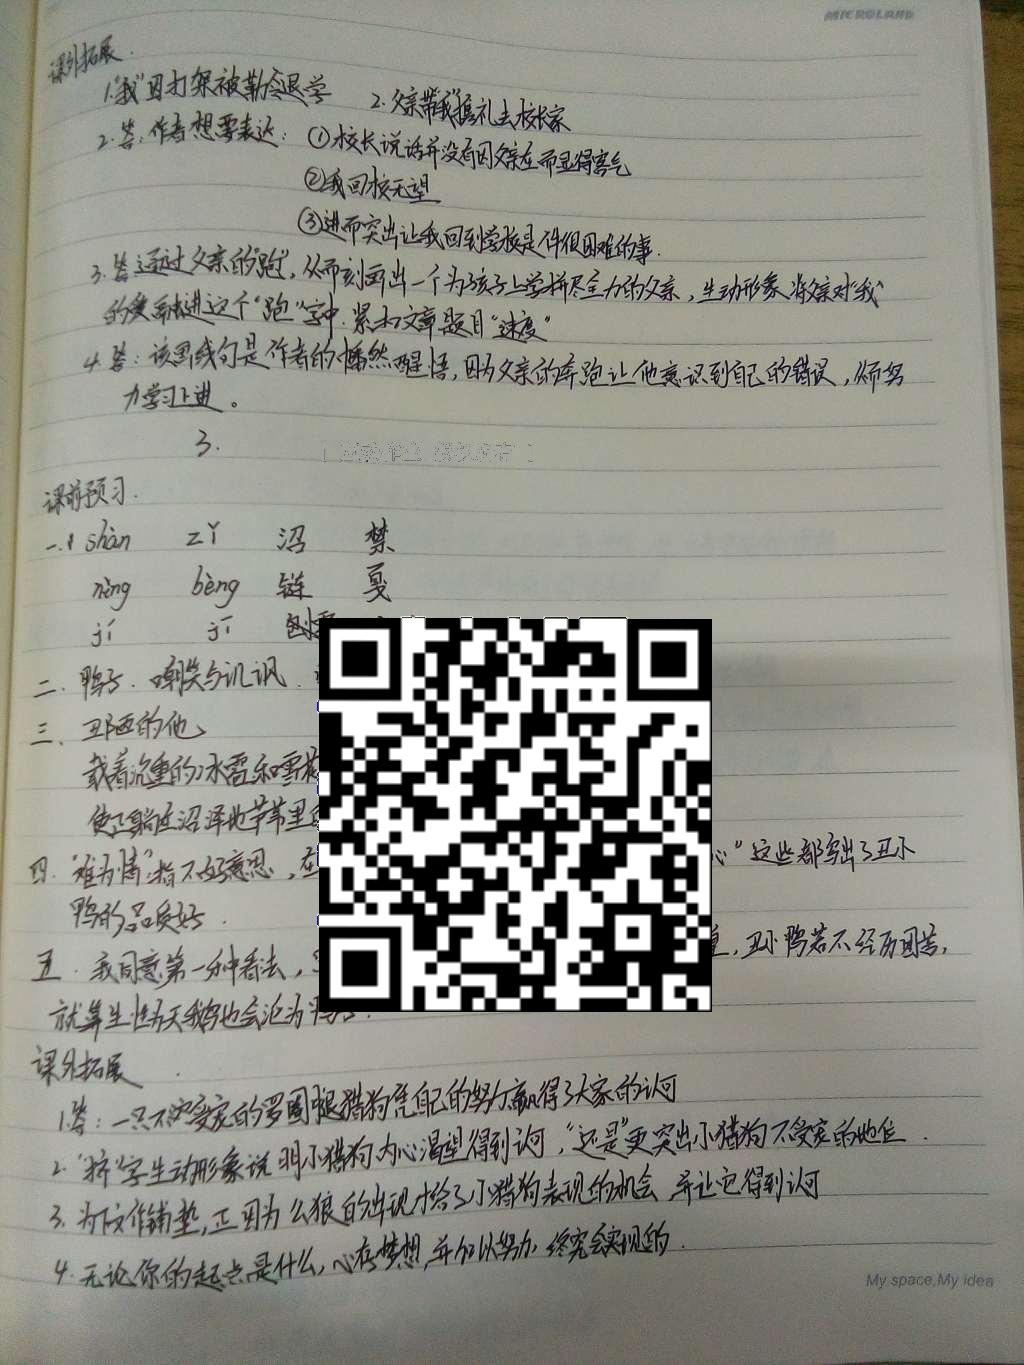 MICROLAND
课外拓展.
1."我"因打架被勒令退学 2.父亲带"我"携礼去校长家
2.答:作者想要表达: ①校长说话并没有因父亲在而显得客气
②我回校无望
③进而突出让我回到学校是件很困难的事.
3.答:通过父亲的"跑",从而刻画出一个为孩子上学拼尽全力的父亲,生动形象将父亲对"我"
的爱融进这个"跑"字中.紧扣文章题目"速度"
4.答:该画线句是作者的幡然醒悟,因为父亲的奔跑让他意识到自己的错误,从而努
力学习上进。
3.
课前预习.
一.1 shàn zǐ 沼 禁
nìng bèng 链 戛
jí jī
二.鸭子.嘲笑与讥讽.
三、丑陋的他
载着沉重的冰雹和雪花
使正躺在沼泽地芦苇里
四."难为情"指不好意思,在 心"这些都写出了丑小
鸭的品质好.
五.我同意第一种看法, ,丑小鸭若不经历困苦,
就算生性为天鹅也会沦为鸭子.
课外拓展.
1.答:一只不受宠的罗圈腿猎狗凭自己的努力赢得了大家的认可
2."挤"字生动形象说明小猎狗内心渴望得到认可,"还是"更突出小猎狗不受宠的地位.
3.为下文作铺垫,正因为公狼的出现才给了小猎狗表现的机会,并让它得到认可
4.无论你的起点是什么,心存梦想,并加以努力,终究会实现的.
My space,My idea